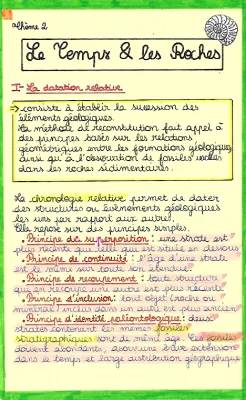 Thème 2
Le Temps & les Roches
I- La datation relative
→ consiste à établir la succession des
éléments géologiques.
La méthode de reconstitution fait appel à
des principes basés sur les relations
géométriques entre les formations géologiques
ainsi qu'à l'observation de fossiles
dans les roches sédimentaires.
La chronologie relative permet de dater
des structures ou évènements géologiques
les uns par rapport aux autres.
Elle repose sur des principes simples.
• Principe de superposition : une strate est
plus récente que celle qui est située en dessous
• Principe de continuité : l'âge d'une strate
est le même sur toute son étendue.
• Principe de recoupement : toute structure
qui en recoupe une autre est plus récente
• Principe d'inclusion : tout objet (roche ou
minéral) inclus dans un autre est plus ancien
• Principe d'identité paléontologique : deux
strates contenant les mêmes fossiles
stratigraphiques sont de même âge. Ces fossiles
doivent abondants, avoir une brève extension
dans le temps et large distribution géographique